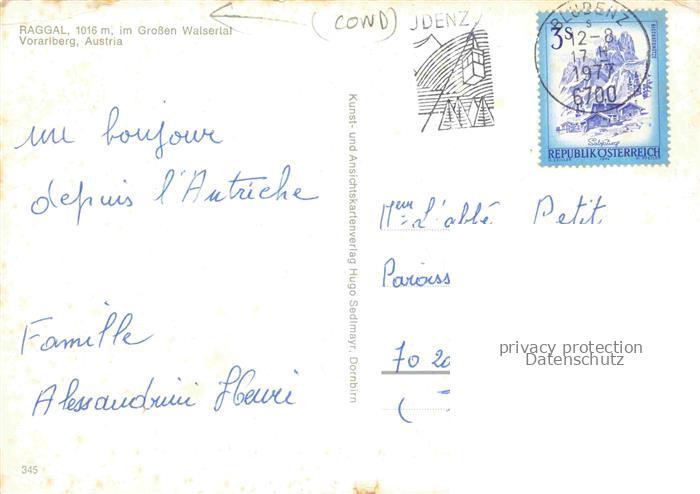 RAGGAL, 1016 m, im Großen Walsertal
Vorarlberg, Austria
(COND)
un bonjour
depuis l'Autriche
Famille
Alessandrini Henri
345
Kunst- und Ansichtskartenverlag Hugo Sedlmayr, Dornbirn
UDENZ
BLUDENZ
s
12-8
1977
6700
3s
REPUBLIK ÖSTERREICH
Mr L'abbé Petit
Paroiss
70 20
(
privacy protection
Datenschutz